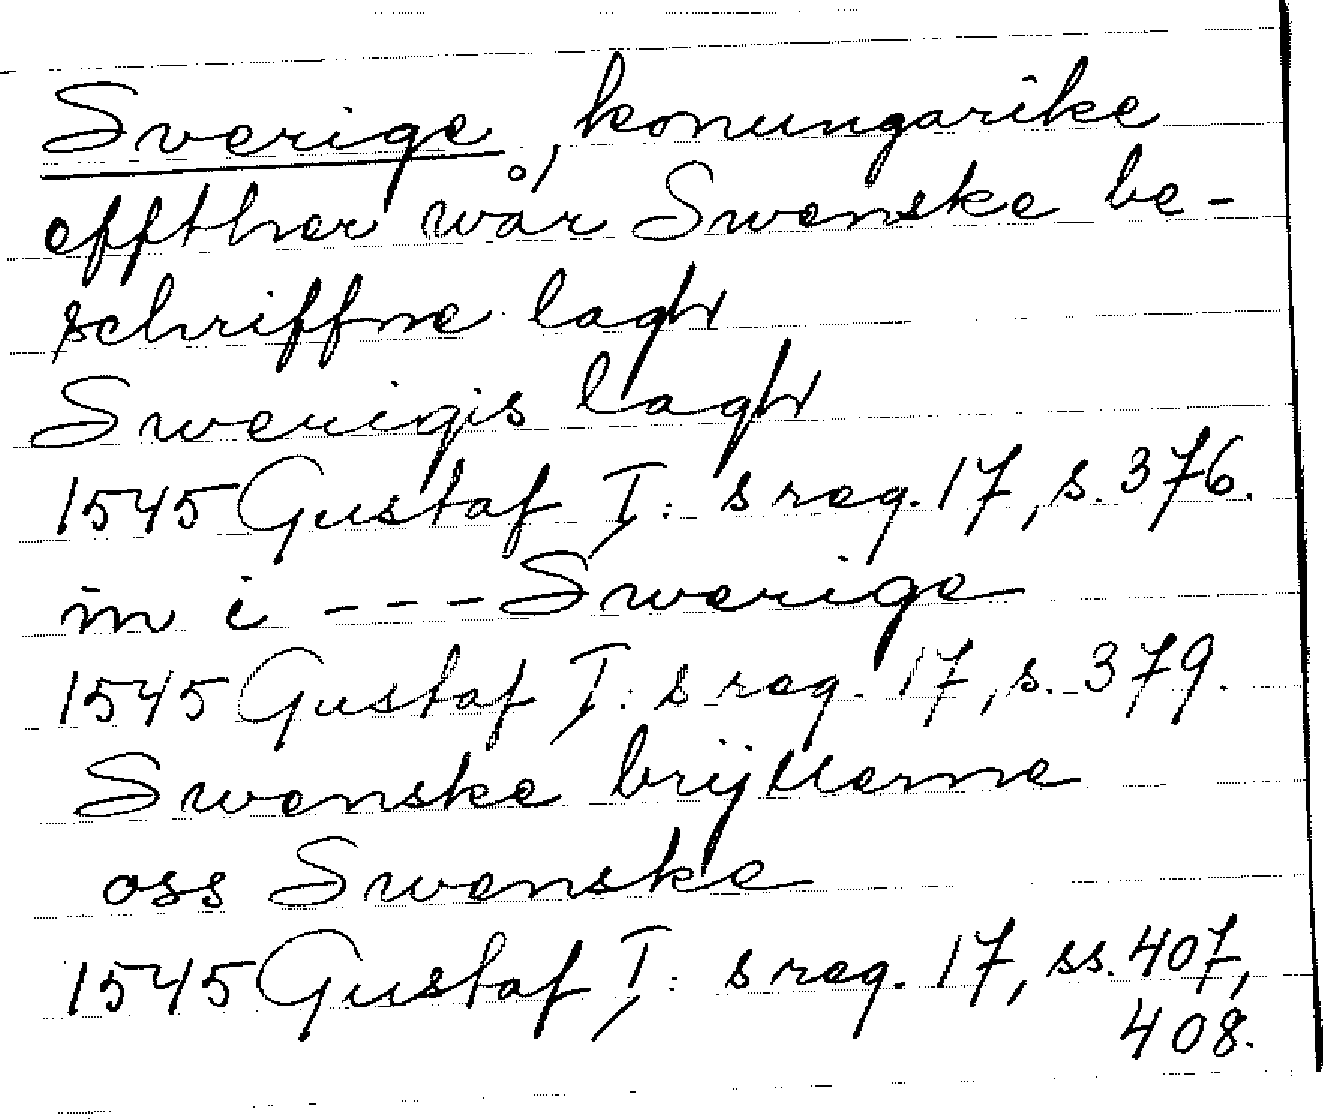 Sverige, konungarike
effther wår Swenske be-
schriffne lagh
Swerigis lagh
1545 Gustaf I:s reg. 17, s. 376.
in i --- Swerige
1545 Gustaf I:s reg. 17, s. 379.
Swenske
oss Swenske
1545 Gustaf I:s reg. 17, ss. 407,
408.